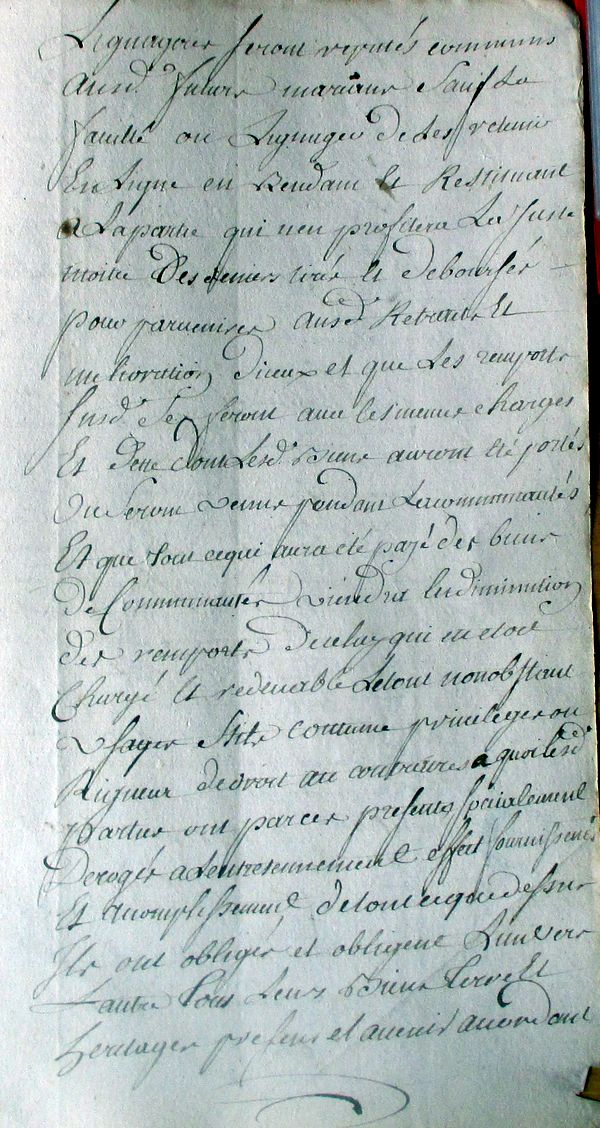 Lignagers seront reputés communs
ausd. futurs marians sauf la
faculté au Lignager de les retenir
En Ligne en Rendant Et Restituant
a La partie qui n'en profitera La Juste
moitié Des deniers tirés Et deboursés
pour parvenir ausd. Retraits Et
melioration d'iceux et que Les remports
susd. se feront aux memes charges
Et dette dont Lesd. Biens auront été portés
Ou seront venus pendant La communautés
Et que tout cequi aura eté payé des biens
De Communautés viendra En diminution
des remports De celuy qui en etoit
Chargé Et redevable Letout nonobstant
Usages stils coutume privileges ou
Rigueur de droit au contraires a quoi lesd.
parties ont par ces presents specialement
Derogés a Lentretennement effect fournissement
Et acomplissement de tout ceque dessus
Ils ont obligés et obligent Lun vers
Lautre tous Leurs Biens terre Et
heritages presens et avenir accordant